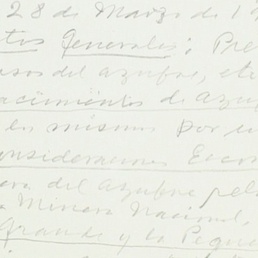 28 de Marzo de 1
tes Generales; Pre
usos del azufre, etc
acimientos de azu
los mismos por
onsideraciones Econ
del azufre
Minera Nacional
Grande y la Peque